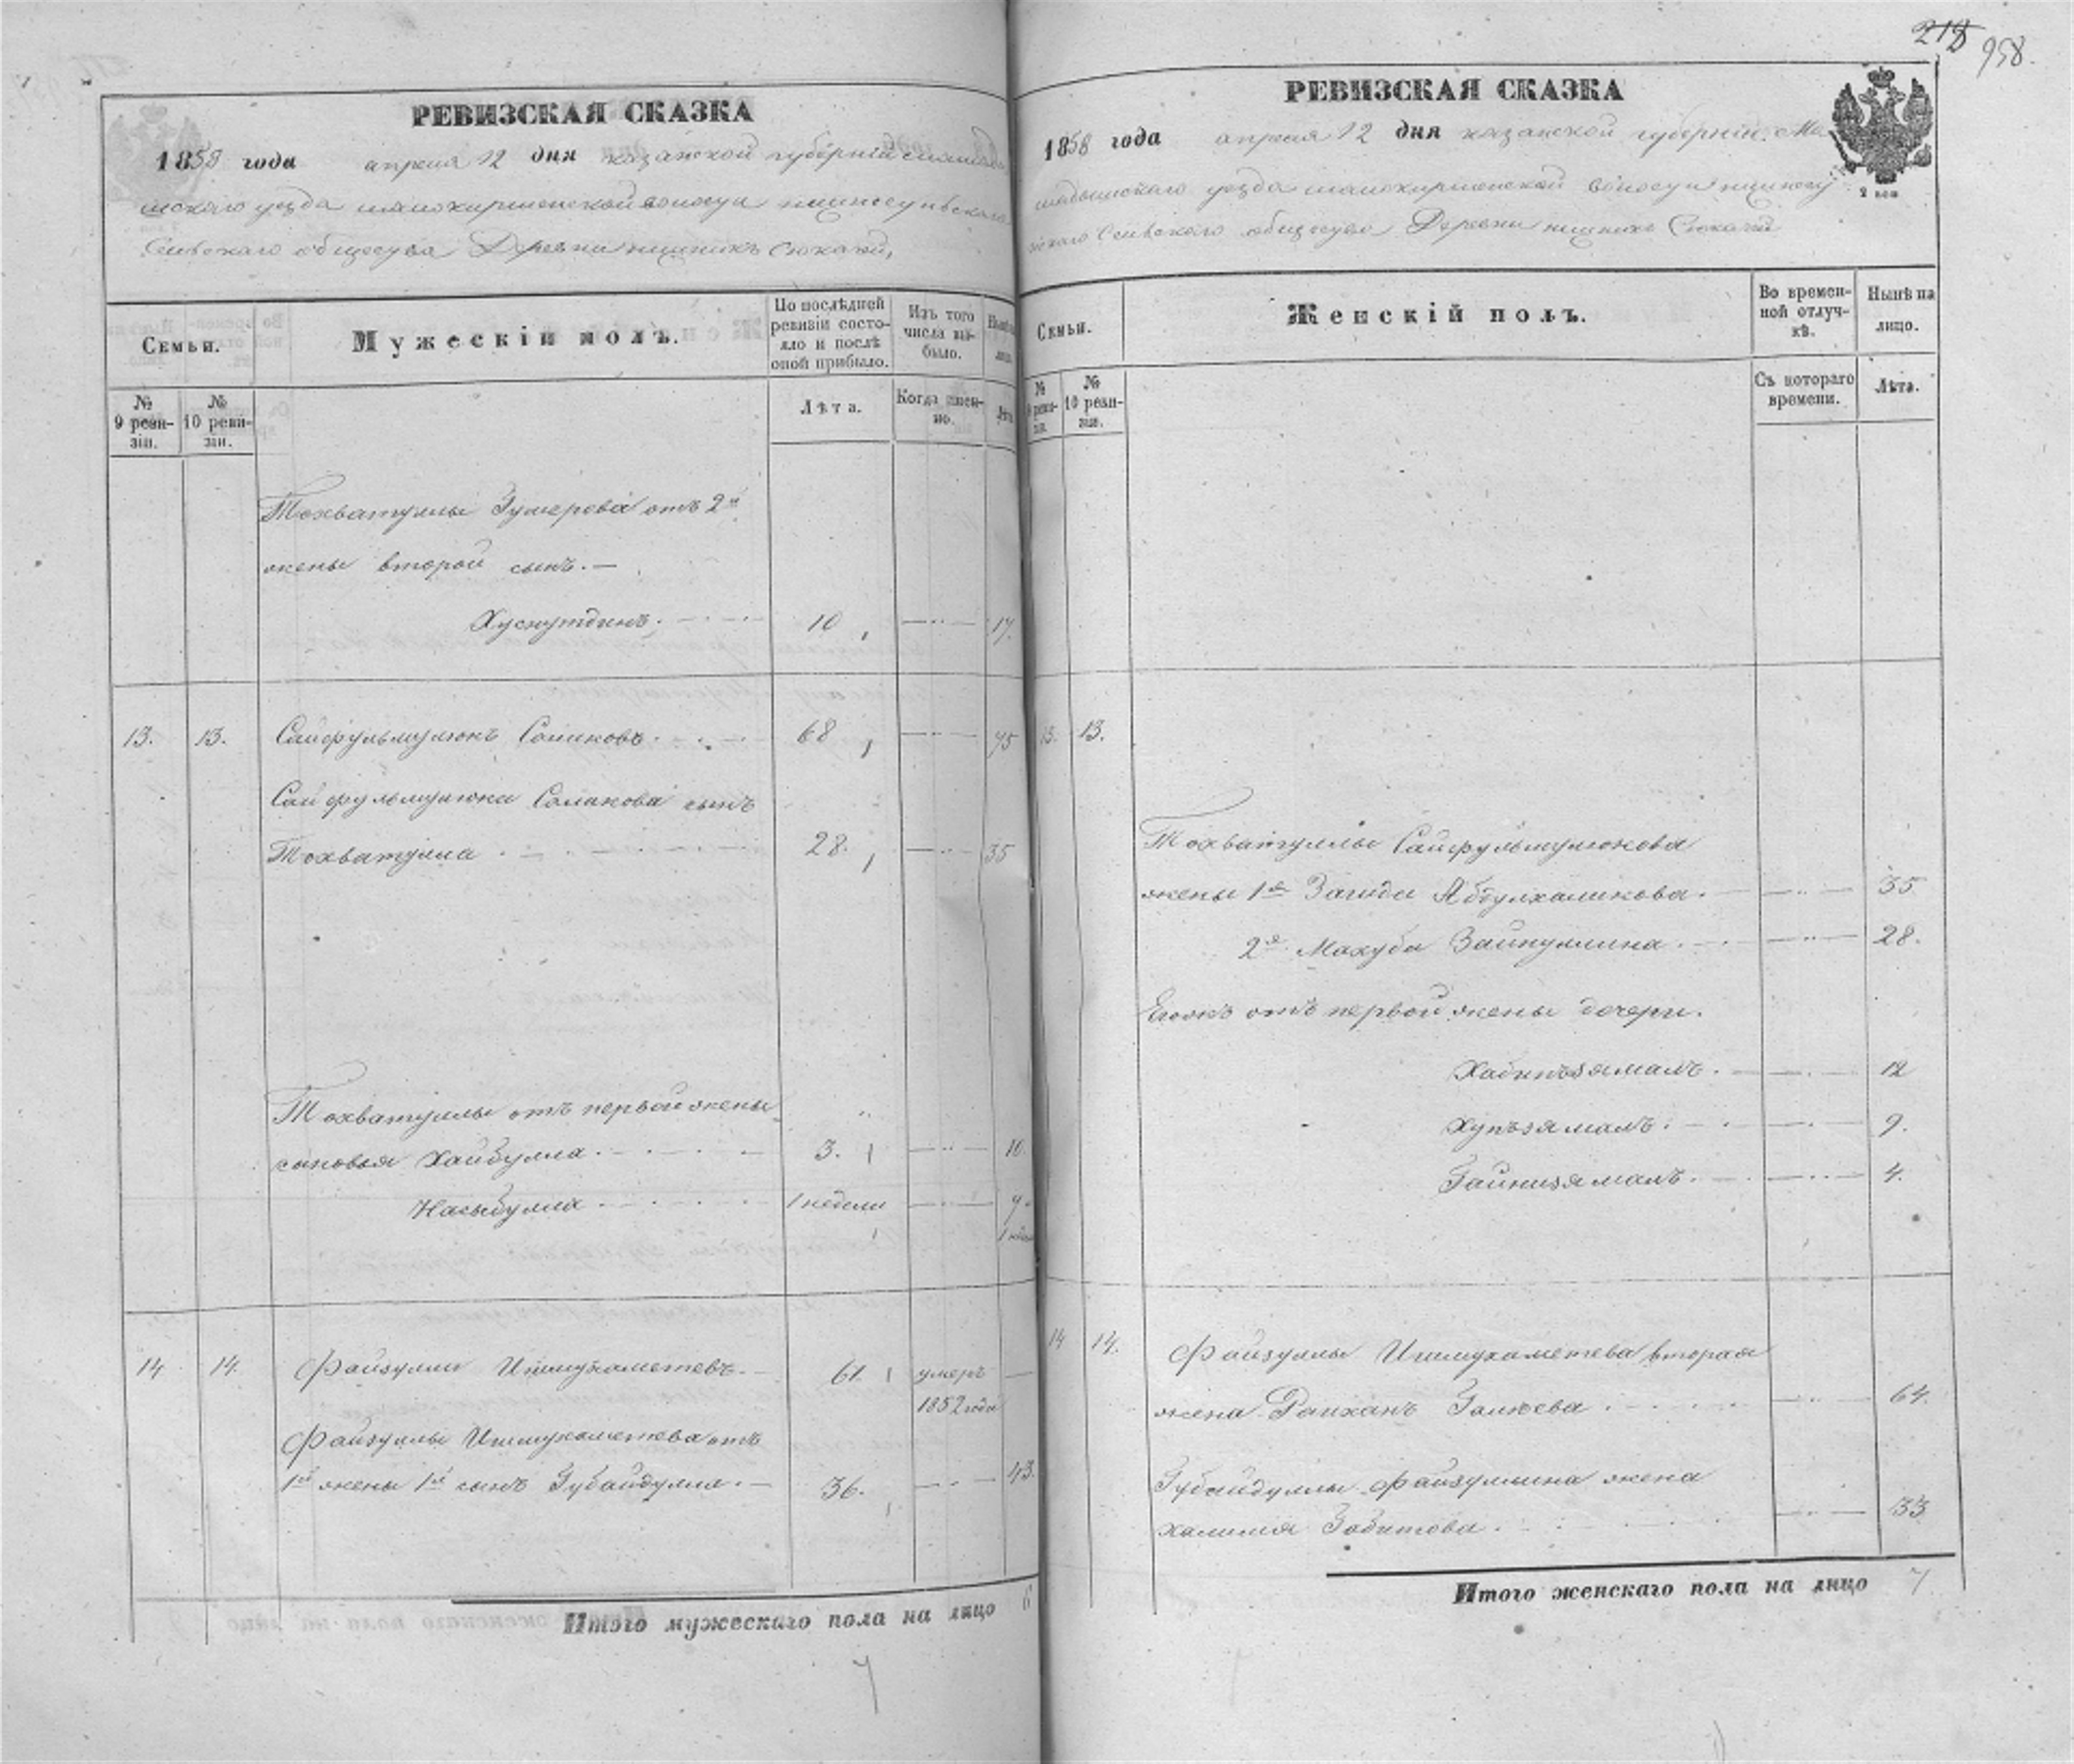 218
958.
РЕВИЗСКАЯ СКАЗКА
1858 года апреля 12 дня казанской губерніи мамады
шскаго уезда
Сеитскаго общества Деревни нижнихъ Сюкачей,
Семьи.
Мужескій полъ.
По послѣдней ревизіи состо-
яло и послѣ
оной прибыло.
Изъ того
числа вы-
было.
Нынѣ на
лицо.
№
9 реви-
зіи.
№
10 реви-
зіи.
Лѣта.
Когда имен-
но.
Лѣта
Тохватуллы Гумерова отъ 2й
жены второй сынъ. —
Хуснутдинъ. 10 17.
13. 13. Сайфульмулюкъ Саликовъ. 68 75
Сайфульмулюка Саликова сынъ
Тохватулла 28. 35
Тохватуллы отъ первой жены
сыновья Хайбулла. 3. 10
Насыбулла 1 недели 7.
1 недели
14 14. Файзулла Ишмухаметевъ. 61. умеръ —
1852 года
Файзуллы Ишмухаметева отъ
1й жены 1й сынъ Губайдулла. — 36. 43.
Итого мужескаго пола на лицо 6
7
РЕВИЗСКАЯ СКАЗКА
1858 года апреля 12 дня казанской губерніи. Ма
мадышскаго уезда
Сеитскаго общества Деревни нижнихъ Сюкачей
2 коп
Семьи.
Женскій полъ.
Во времен-
ной отлуч-
кѣ.
Нынѣ на
лицо.
№
9 реви-
зіи.
№
10 реви-
зіи.
Съ котораго
времени.
Лѣта.
13. 13.
Тохватуллы Сайфульмулюкова
жены 1я Загида Абдулхаликова. 35
2я Махуба Зайнуллина. 28.
Егожъ отъ первой жены дочери.
Хабипъзямалъ. 12
Хупъзямалъ. 9.
Гайнизямалъ. 4.
14 14. Файзуллы Ишмухаметева вторая
жена Раиханъ Галиева 64.
Губайдуллы Файзуллина жена
Халимя Забитова. 33
Итого женскаго пола на лицо 7